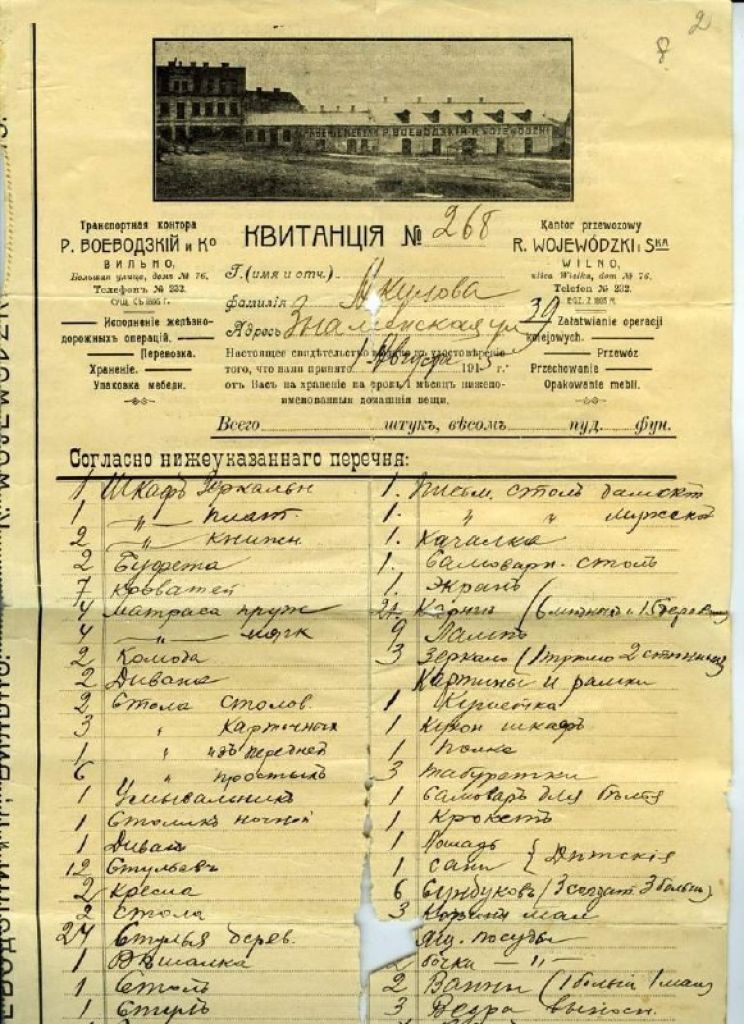 2
8
Р. ВОЕВОДЗКІЙ R. WOJEWÓDZKI
Транспортная контора
Р. ВОЕВОДЗКІЙ и Ко
ВИЛЬНО,
Большая улица, домъ № 76.
Телефонъ № 232.
СУЩ. СЪ 1895 Г.
Исполненіе желѣзно-
дорожныхъ операцій.
Перевозка.
Храненіе.
Упаковка мебели.
КВИТАНЦІЯ № 268
Г. (имя и отч.)
фамилія Акулова
Адресъ Знаменская ул 39
Настоящее свидѣтельство
того, что нами принято 1 Августа 1913 г.
отъ Васъ на храненіе на срокъ 1 мѣсяц нижепо-
именованныя домашнія вещи.
Kantor przewozowy
R. WOJEWÓDZKI i SKA
WILNO,
ulica Wielka, dom № 76.
Telefon № 232.
EGZ. Z 1895 R.
Załatwianie operacji
kolejowych.
Przewóz
Przechowanie
Opakowanie mebli.
Всего штукъ, вѣсомъ пуд. фун.
Согласно нижеуказаннаго перечня:
1 Шкафъ Зеркальн
1 „ плат.
2 „ книжн
2 Буфета
7 Кроватей
4 Матраса пруж
4 „ мягк
2 Комода
2 Дивана
2 Стола столов.
3 „ карточныхъ
1 „ изъ передней
6 „ простыхъ
1 Умывальникъ
1 Столикъ ночной
1 Диванъ
12 Стульевъ
2 Кресла
2 Стола
24 Стулья дерев.
1 Вѣшалка
1 Столъ
1 Стулъ
1. Письм. столъ дамскій
1. „ „ мужской
1. Качалка
1. Самоварн. столъ
1. Экранъ
9 Лампъ
3 Зеркало (1 трюмо 2 стѣнных)
Картины и рамки
1 Кушетка
1 Кухон шкафъ
1 Полка
3 Табуретки
1 Самоваръ для бѣлья
1 Крокетъ
1 Лошадь
1 Сани } Дѣтскія
6 Сундуковъ (3 солдат. 3 больш)
3
ящ. посуды
2 бочка — „ —
2 Ванны (1 больш 1 мал)
3 Ведра выносн.